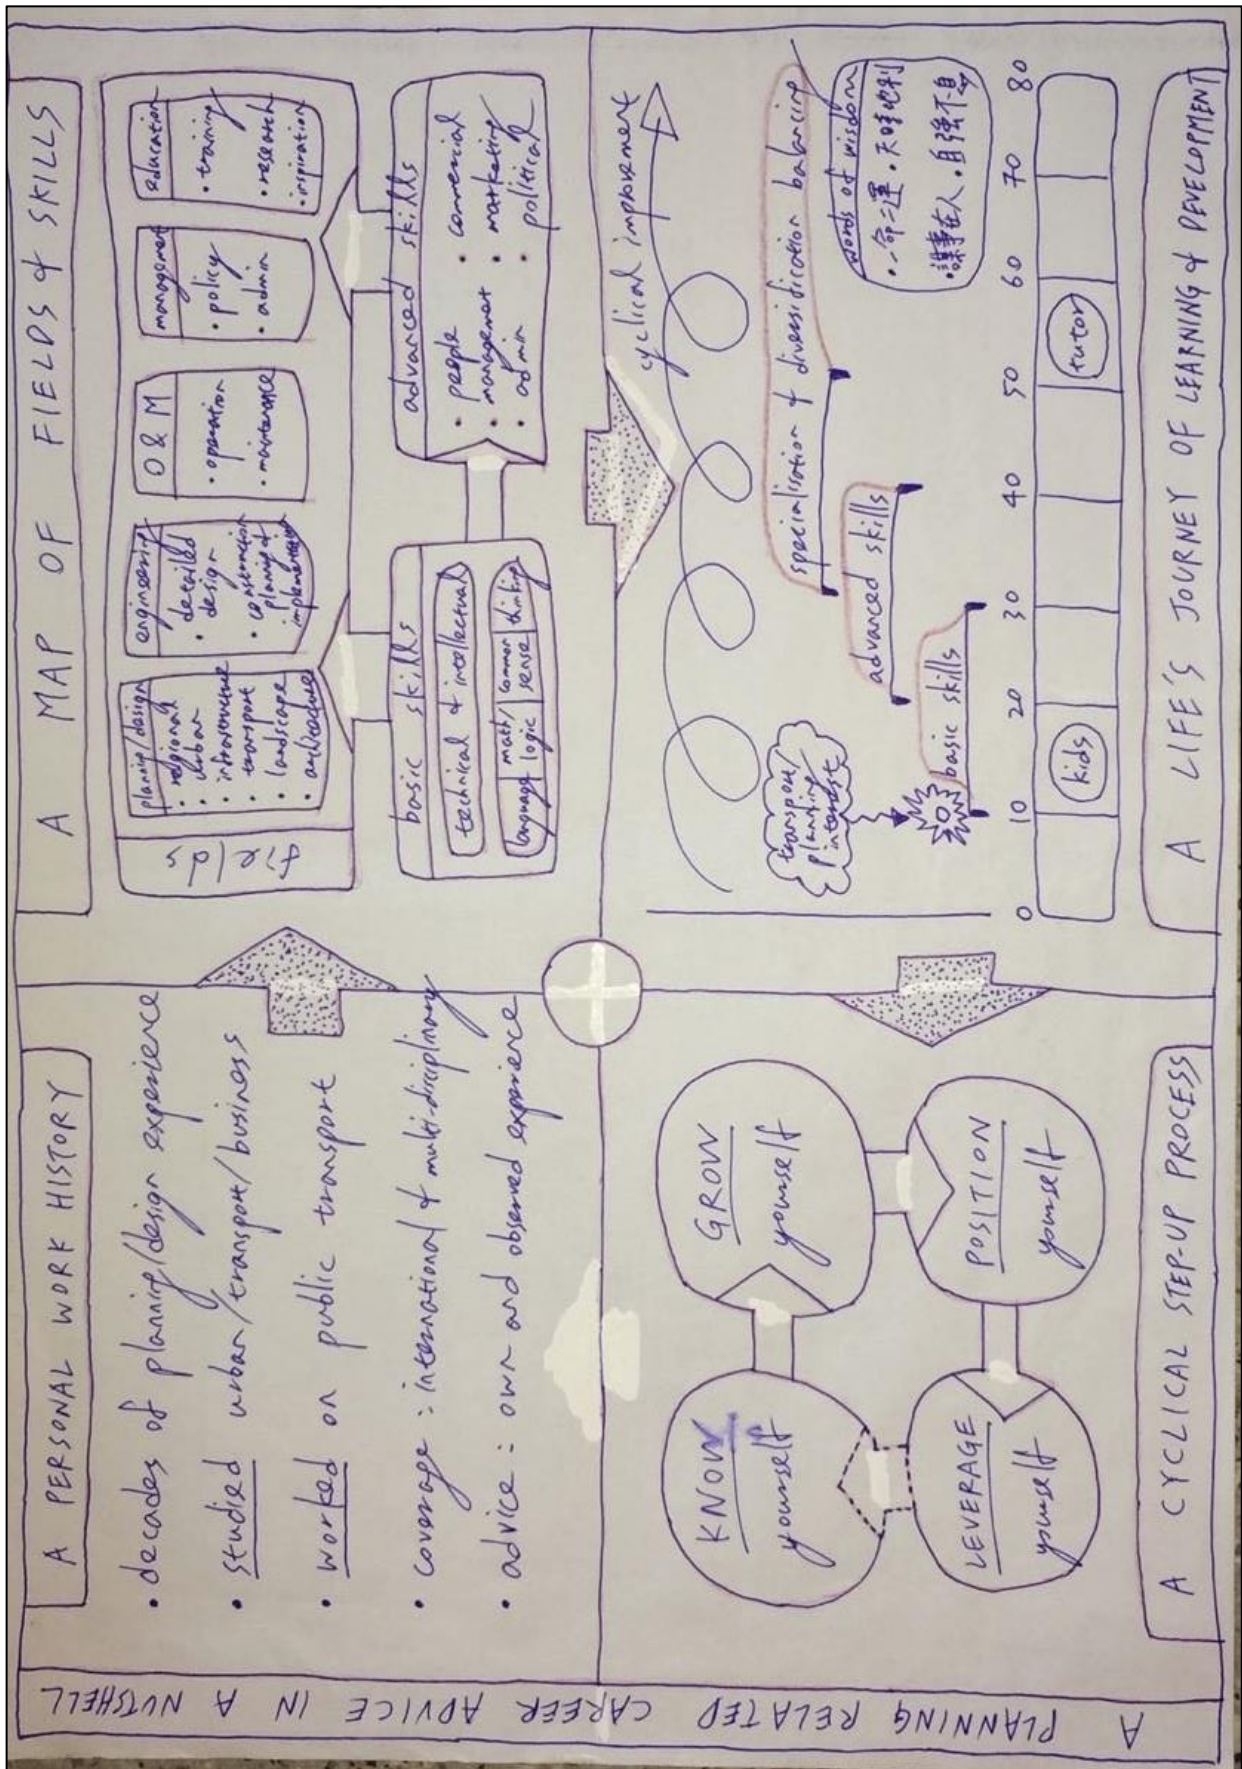 A PLANNING RELATED CAREER ADVICE IN A NUTSHELL
A PERSONAL WORK HISTORY
• decades of planning/design experience
• studied urban/transport/business
• worked on public transport
• coverage : international & multi-disciplinary
• advice : own and observed experience
A MAP OF FIELDS & SKILLS
fields
planning/design
• regional
• urban
• infrastructure
• transport
• landscape
• architecture
engineering
• detailed
design
• construction
planning &
implementation
O & M
• operation
• maintenance
management
• policy
• admin
education
• training
• research
• inspiration
basic skills
technical & intellectual
language
math/
logic
common
sense
thinking
advanced skills
• people
• management
• admin
• commercial
• marketing
• political
KNOW
yourself
GROW
yourself
LEVERAGE
yourself
POSITION
yourself
A CYCLICAL STEP-UP PROCESS
cyclical improvement
transport/
planning
interest
specialisation & diversification balancing
advanced skills
basic skills
words of wisdom
• 一命二運 • 天時地利
• 謀事在人 • 自強不息
0 10 20 30 40 50 60 70 80
kids
tutor
A LIFE'S JOURNEY OF LEARNING & DEVELOPMENT